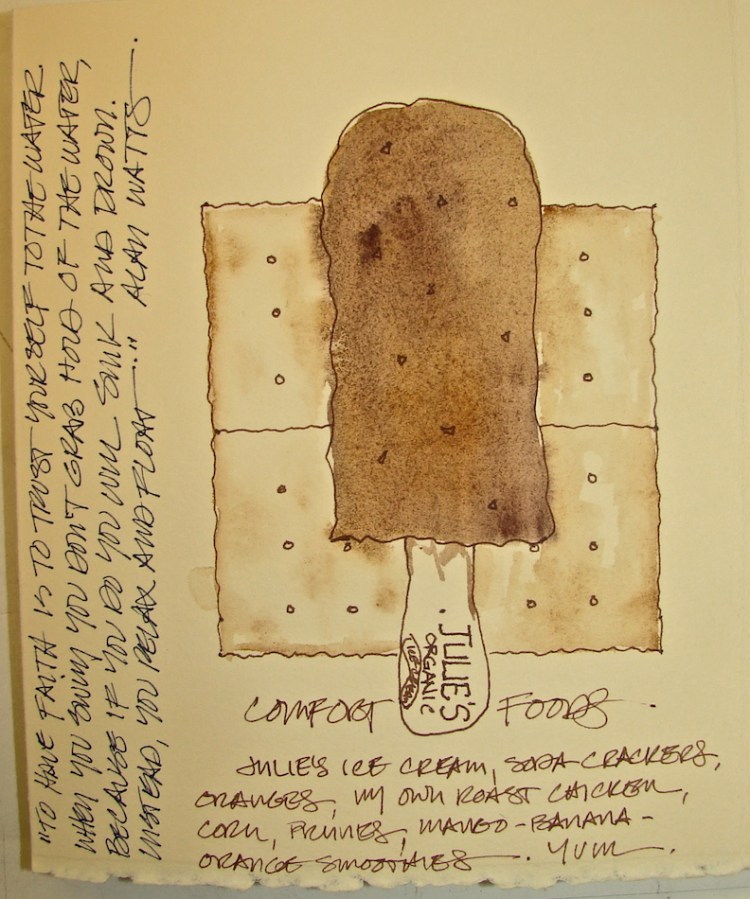 "TO HAVE FAITH IS TO TRUST YOURSELF TO THE WATER.
WHEN YOU SWIM YOU DON'T GRAB HOLD OF THE WATER,
BECAUSE IF YOU DO YOU WILL SINK AND DROWN.
INSTEAD, YOU RELAX AND FLOAT..." ALAN WATTS
JULIE'S
ORGANIC
COMFORT FOODS
JULIE'S ICE CREAM, SODA CRACKERS,
ORANGES, MY OWN ROAST CHICKEN,
CORN, PRUNES, MANGO-BANANA-
ORANGE SMOOTHIES. YUM.